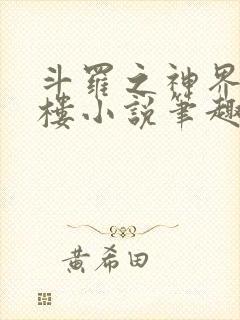 斗羅之神界
樓小說筆趣
黃希田